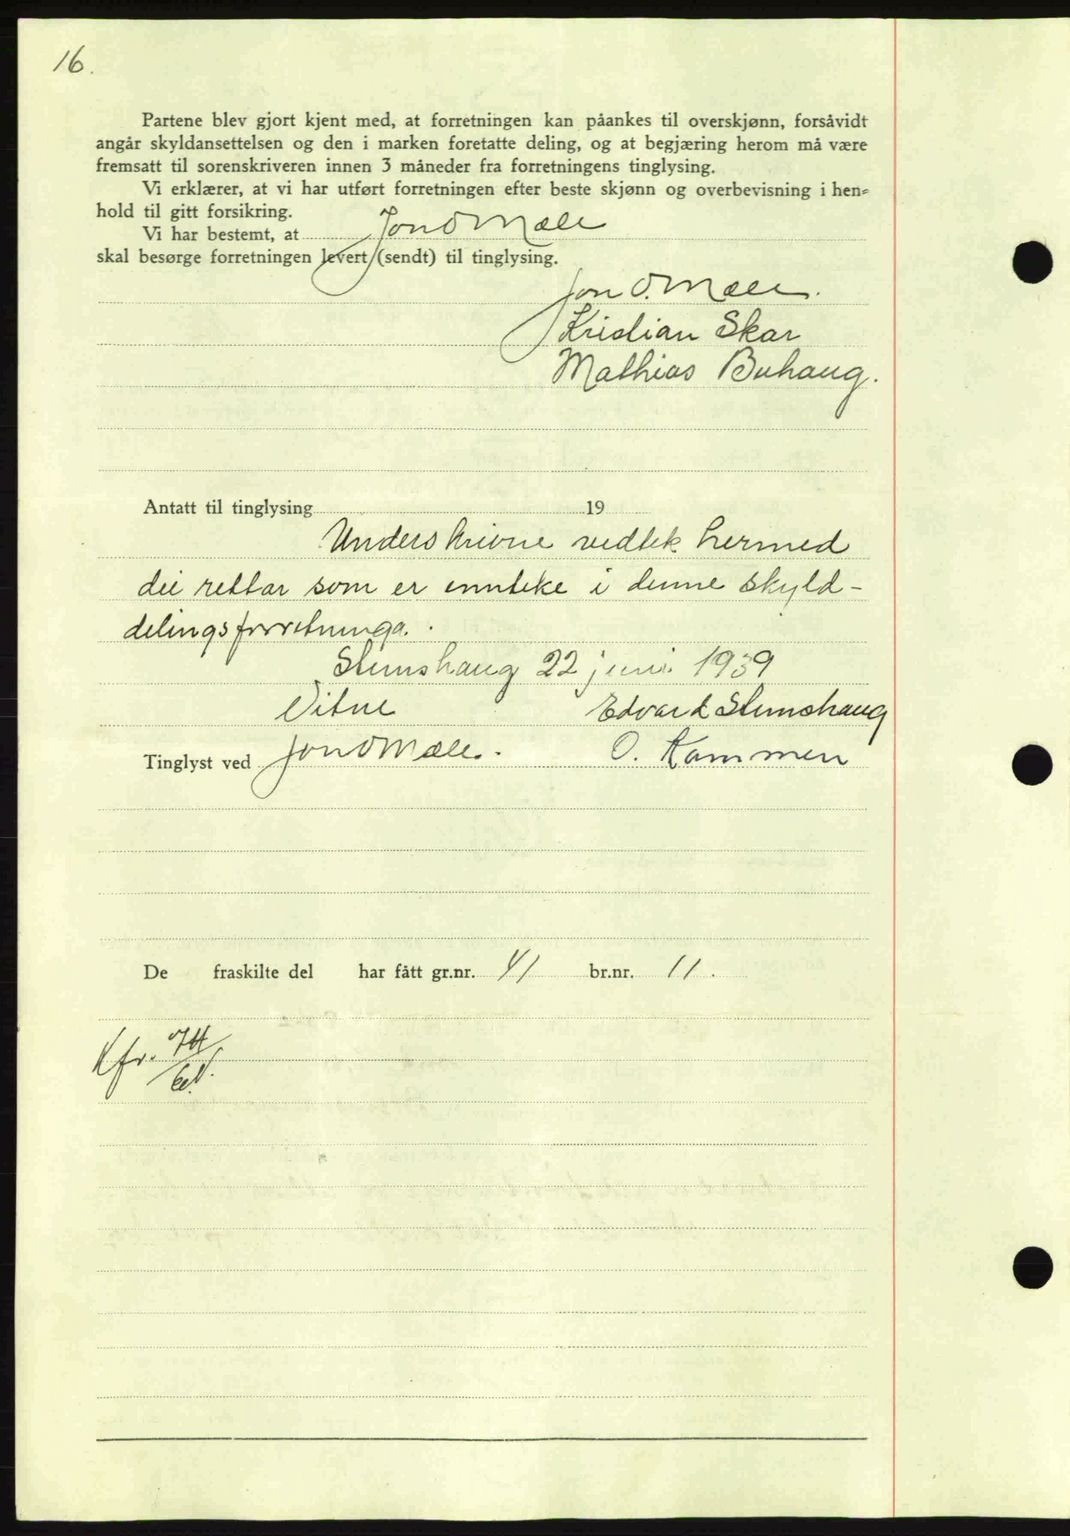 16.
Partene blev gjort kjent med, at forretningen kan påankes til overskjønn, forsåvidt
angår skyldansettelsen og den i marken foretatte deling, og at begjæring herom må være
fremsatt til sorenskriveren innen 3 måneder fra forretningens tinglysing.
Vi erklærer, at vi har utført forretningen efter beste skjønn og overbevisning i hen-
hold til gitt forsikring.
Vi har bestemt, at Jon O Mæle
skal besørge forretningen levert (sendt) til tinglysing.
Jon O. Mæle.
Kristian Skar
Mathias Buhaug.
Antatt til tinglysing 19
Underskrivne vedtek hermed
dei rettar som er innteke i denne skyld-
delingsforretninga.
Stenshaug 22 juni 1939
Vitne Edvard Stenshaug
Tinglyst ved Jon O Mæle. O. Kammen
De fraskilte del har fått gr.nr. 41 br.nr. 11.
Kfr.